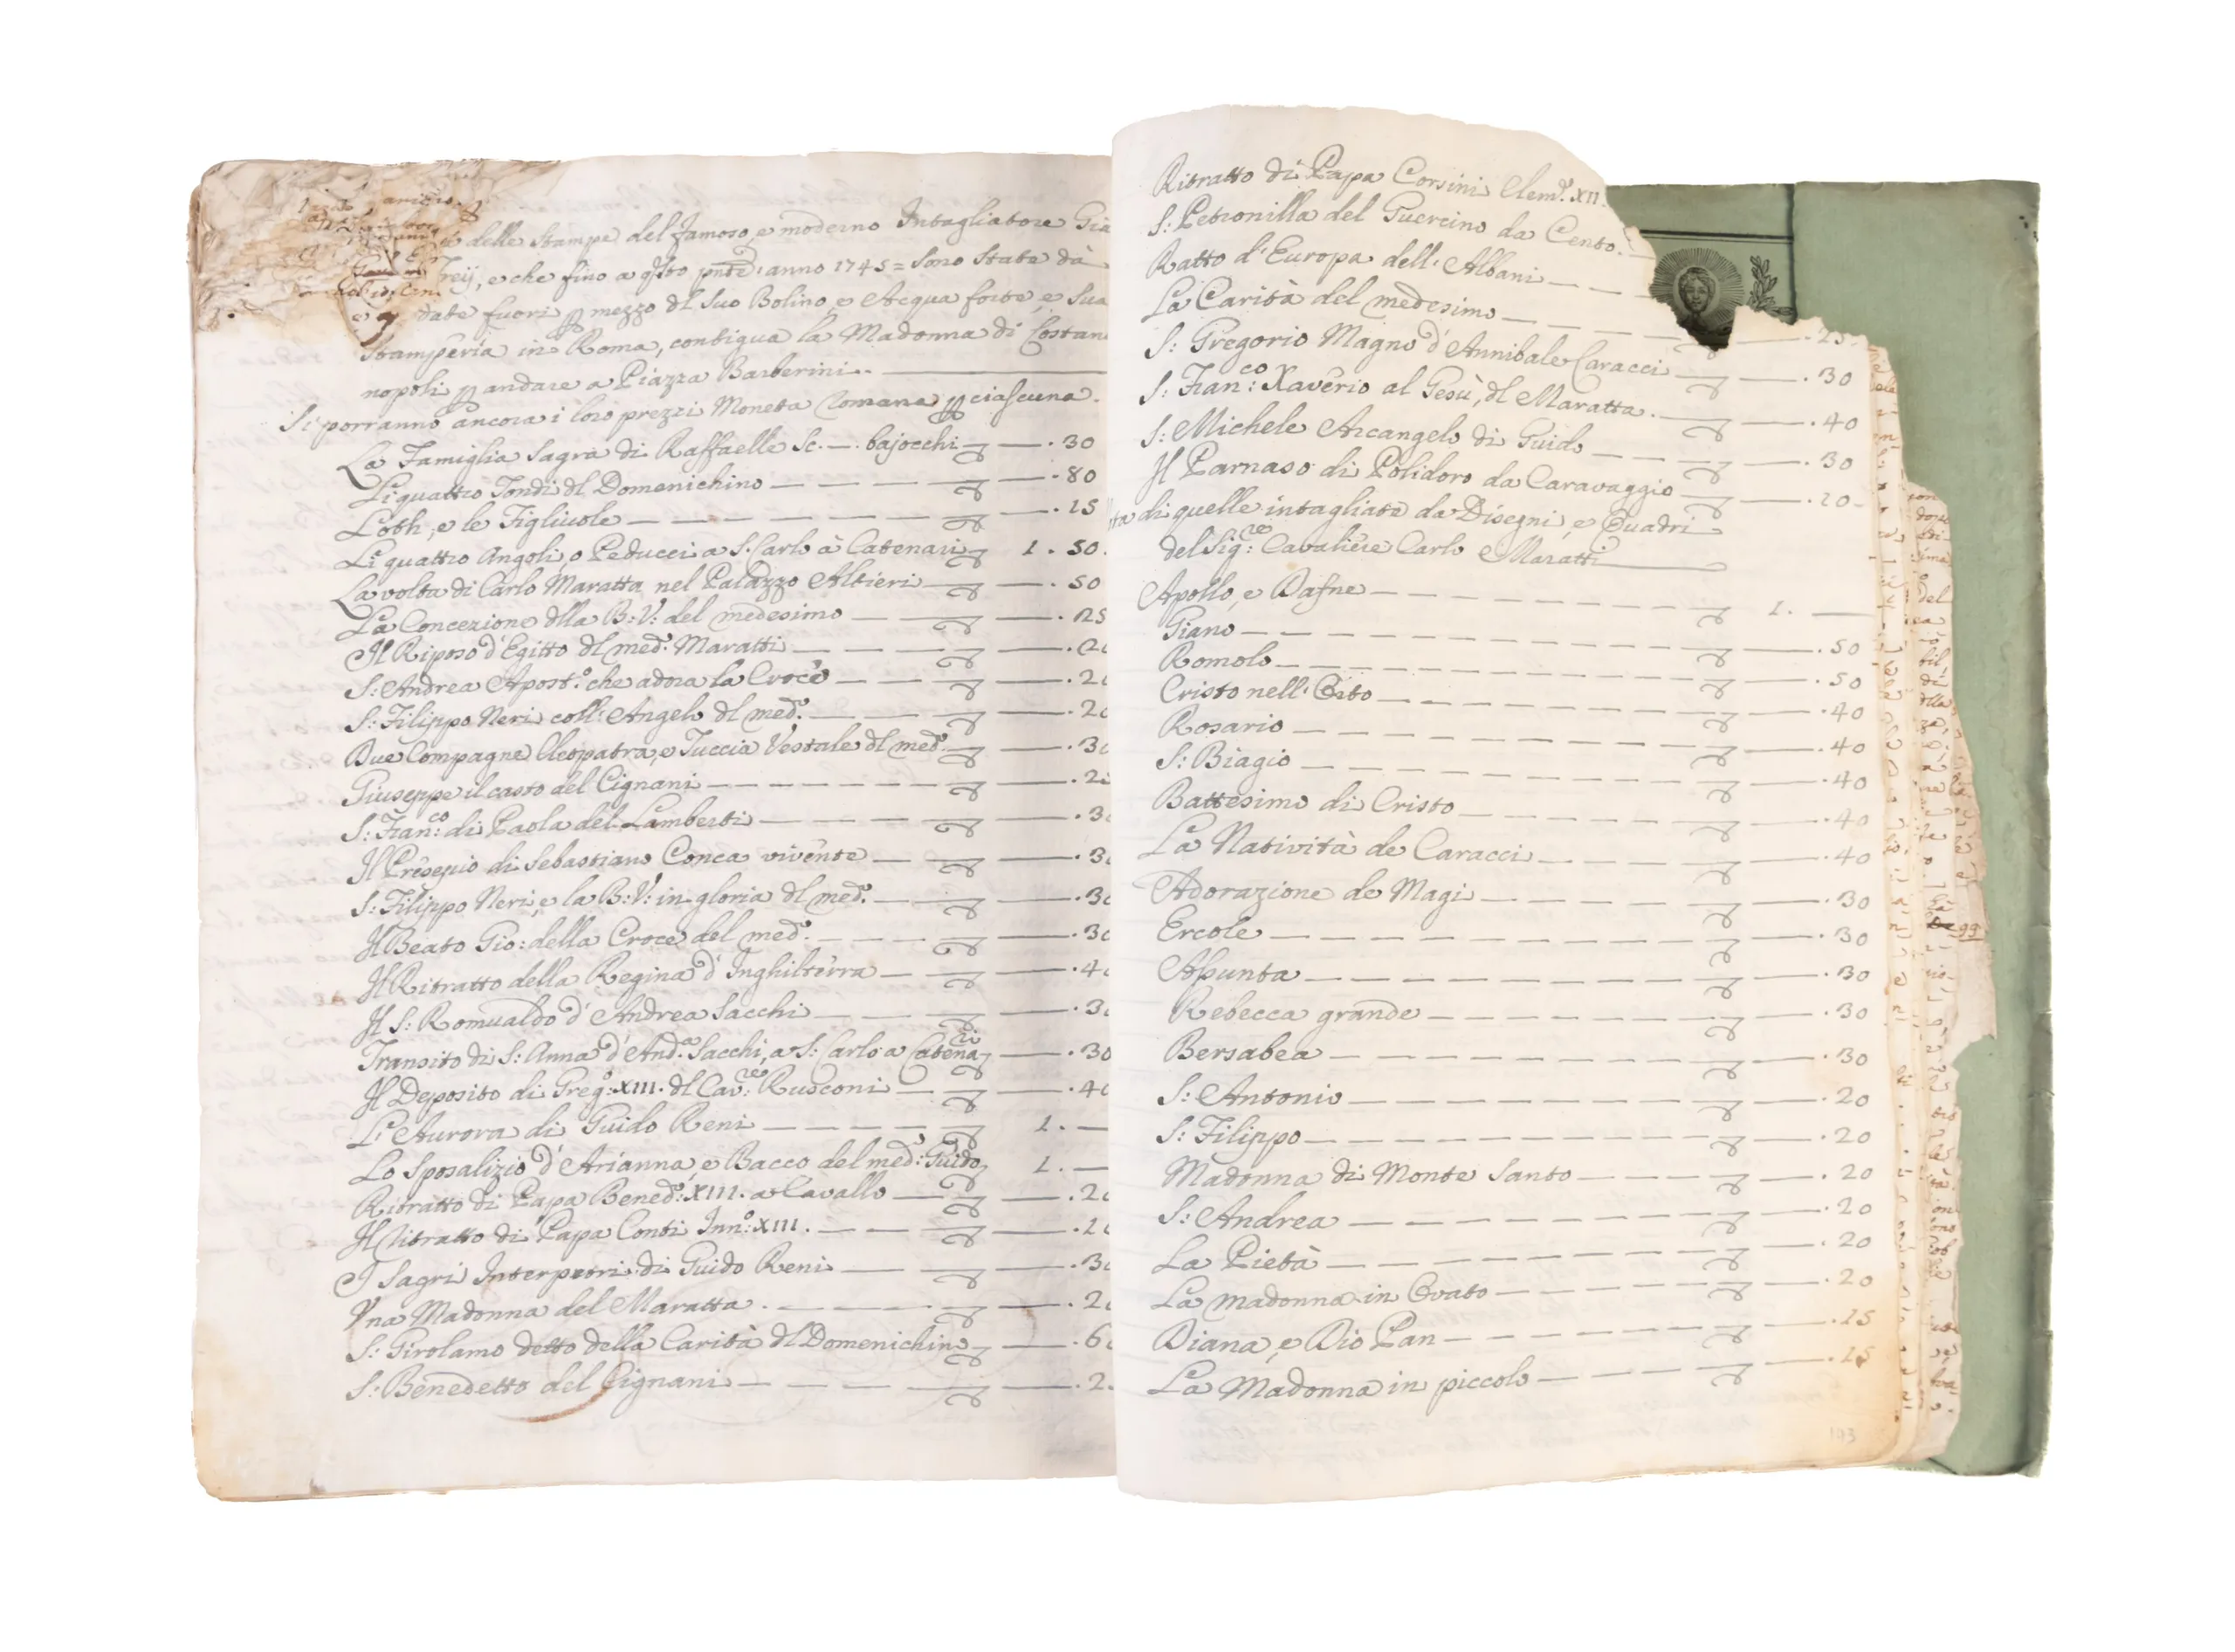 delle Stampe del famoso, e moderno Intagliatore Gia
Freij, e che fino a qsto pnte anno 1745 = sono state da
date fuori p mezzo dl suo Bolino, e Acqua forte, e sua
Stamperia in Roma, contigua la Madonna di Costan
nopoli p andare a Piazza Barberini..
Si porranno ancora i loro prezzi Moneta Romana p ciascuna.
La Famiglia Sagra di Raffaelle Sc. — bajocchi — . 30
Li quattro Tondi dl Domenichino — . 80
Loth, e le Figliuole — . 15
Li quattro Angoli, o Peducci a S. Carlo à Catenari 1 . 50.
La volta di Carlo Maratta nel Palazzo Altieri — . 50
La Concezione dlla B: V: del medesimo — . 25
Il Riposo d'Egitto dl med.o Maratti — . 2
S: Andrea Apost.o che adora la Croce — . 2
S: Filippo Neri coll' Angelo dl med.o — . 2
Due Compagne Cleopatra, e Tuccia Vestale dl med.o — . 3
Giuseppe il casto del Cignani — . 2
S: Fran:co di Paola del Lamberti — . 3
Il Presepio di Sebastiano Conca vivente — . 3
S: Filippo Neri, e la B: V: in gloria dl med.o — . 3
Il Beato Gio: della Croce del med.o — . 3
Il Ritratto della Regina d'Inghilterra — . 4
Il S: Romualdo d'Andrea Sacchi — . 3
Transito di S: Anna d'And.a Sacchi, a S: Carlo a Catenari — . 30
Il Deposito di Greg:o XIII. dl Cav:re Rusconi — . 4
L'Aurora di Guido Reni — 1. —
Lo Sposalizio d'Arianna, e Bacco del med:o Guido 1. —
Ritratto di Papa Bened:o XIII. a Cavallo — . 2
Il Ritratto di Papa Conti Inn:o XIII. — . 2
I Sagri Interpetri di Guido Reni — . 3
Vna Madonna del Maratta . — . 2
S: Girolamo detto della Carità dl Domenichino — . 6
S: Benedetto del Cignani — . 2
Ritratto di Papa Corsini Clem.o XII.
S: Petronilla del Guercino da Cento.
Ratto d'Europa dell' Albani —
La Carità del medesimo — . 25.
S: Gregorio Magno d'Annibale Caracci — . 30
S: Fran:co Xaverio al Gesù, dl Maratta. — . 40
S: Michele Arcangelo di Guido — . 30
Il Parnaso di Polidoro da Caravaggio — . 20
di quelle intagliate da Disegni, e Quadri
del Sig:re Cavaliere Carlo Maratti
Apollo, e Dafne — 1. —
Giano — . 50
Romolo — . 50
Cristo nell' Orto — . 40
Rosario — . 40
S: Biagio — . 40
Battesimo di Cristo — . 40
La Natività de Caracci — . 40
Adorazione de Magi — . 30
Ercole — . 30
Assunta — . 30
Rebecca grande — . 30
Bersabea — . 30
S: Antonio — . 20
S: Filippo — . 20
Madonna di Monte Santo — . 20
S: Andrea — . 20
La Pietà — . 20
La madonna in Ovato — . 20
Diana, e Dio Pan — . 15
La Madonna in piccolo — . 15
193